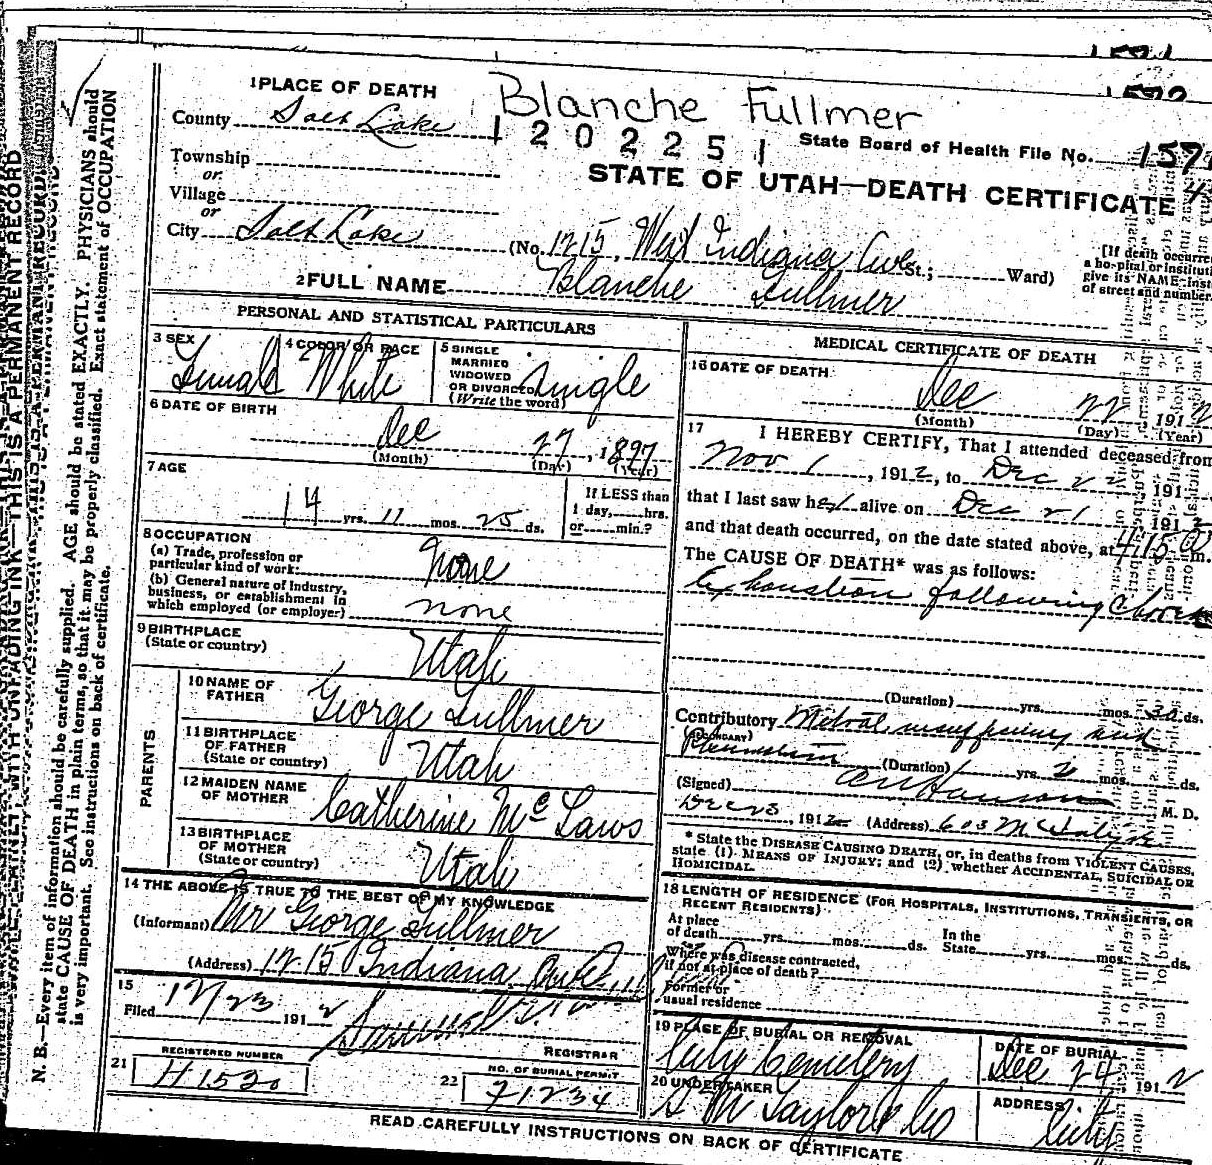 1571
1572
Blanche Fullmer
1 PLACE OF DEATH
County Salt Lake
120225 1
State Board of Health File No. 157
STATE OF UTAH—DEATH CERTIFICATE
Township
or
Village
or
City Salt Lake (No. 1215, West Indiana Ave St.; Ward)
[If death occurre
a hospital or instituti
give its NAME inst
of street and number.
2 FULL NAME Blanche Fullmer
PERSONAL AND STATISTICAL PARTICULARS
3 SEX Female
4 COLOR OR RACE White
5 SINGLE MARRIED WIDOWED OR DIVORCED (Write the word) Single
6 DATE OF BIRTH
Dec 27, 1897
(Month) (Day) (Year)
7 AGE
14 yrs. 11 mos. 25 ds.
If LESS than
1 day, hrs.
or min.?
8 OCCUPATION
(a) Trade, profession or
particular kind of work: None
(b) General nature of Industry,
business, or establishment in
which employed (or employer) none
9 BIRTHPLACE
(State or country) Utah
PARENTS
10 NAME OF
FATHER George Fullmer
11 BIRTHPLACE
OF FATHER
(State or country) Utah
12 MAIDEN NAME
OF MOTHER Catherine McLaws
13 BIRTHPLACE
OF MOTHER
(State or country) Utah
14 THE ABOVE IS TRUE TO THE BEST OF MY KNOWLEDGE
(Informant) Mr George Fullmer
(Address) 1215 Indiana Ave
15
Filed 12/23 1912
REGISTRAR
21 REGISTERED NUMBER
H1520
22 NO. OF BURIAL PERMIT
71234
MEDICAL CERTIFICATE OF DEATH
16 DATE OF DEATH
Dec 22 1912
(Month) (Day) (Year)
17 I HEREBY CERTIFY, That I attended deceased from
Nov 1, 1912, to Dec 22 191
that I last saw her alive on Dec 21, 1912
and that death occurred, on the date stated above, at 4:15 a m.
The CAUSE OF DEATH* was as follows:
Exhaustion following Chorea
(Duration) yrs. mos. 30 ds.
Contributory Mitral insufficiency and
(SECONDARY)
Rheumatism (Duration) yrs. 2 mos. ds.
(Signed) M. D.
Dec 23 1912 (Address) 603 McIntyre
* State the DISEASE CAUSING DEATH, or, in deaths from VIOLENT CAUSES,
state (1) MEANS OF INJURY; and (2) whether ACCIDENTAL, SUICIDAL OR
HOMICIDAL.
18 LENGTH OF RESIDENCE (FOR HOSPITALS, INSTITUTIONS, TRANSIENTS, OR
RECENT RESIDENTS)
At place
of death yrs. mos. ds. In the
State yrs. mos. ds.
Where was disease contracted,
if not at place of death?
Former or
usual residence
19 PLACE OF BURIAL OR REMOVAL
City Cemetery
DATE OF BURIAL
Dec 24, 1912
20 UNDERTAKER
S M Taylor & Co
ADDRESS
City
READ CAREFULLY INSTRUCTIONS ON BACK OF CERTIFICATE
N. B.—Every item of information should be carefully supplied. AGE should be stated EXACTLY. PHYSICIANS should
state CAUSE OF DEATH in plain terms, so that it may be properly classified. Exact statement of OCCUPATION
is very important. See instructions on back of certificate.
WITH UNFADING INK—THIS IS A PERMANENT RECORD